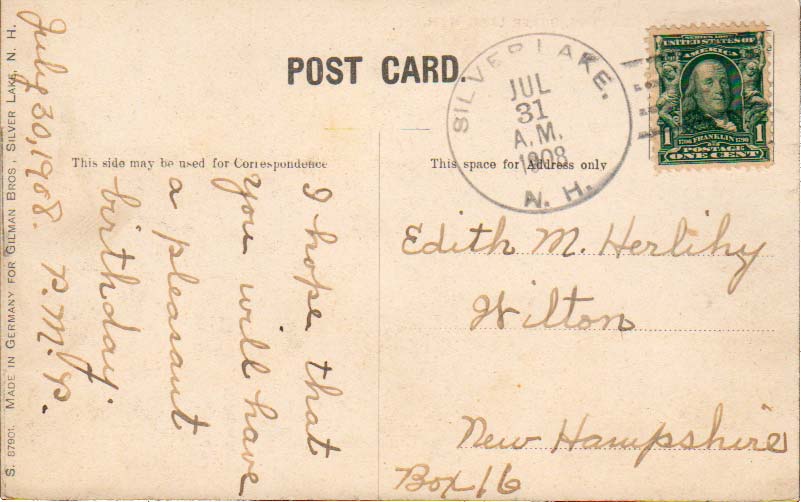 POST CARD.
SILVER LAKE.
JUL
31
A.M.
1908
N. H.
SERIES 1902
UNITED STATES OF
AMERICA
1
1706 FRANKLIN 1790
1
POSTAGE
ONE CENT
This side may be used for Correspondence
This space for Address only
I hope that
you will have
a pleasant
birthday.
P.M.P.
July 30, 1908.
Edith M. Herlihy
Wilton
New Hampshire
Box 16
S. 87901. MADE IN GERMANY FOR GILMAN BROS., SILVER LAKE, N. H.